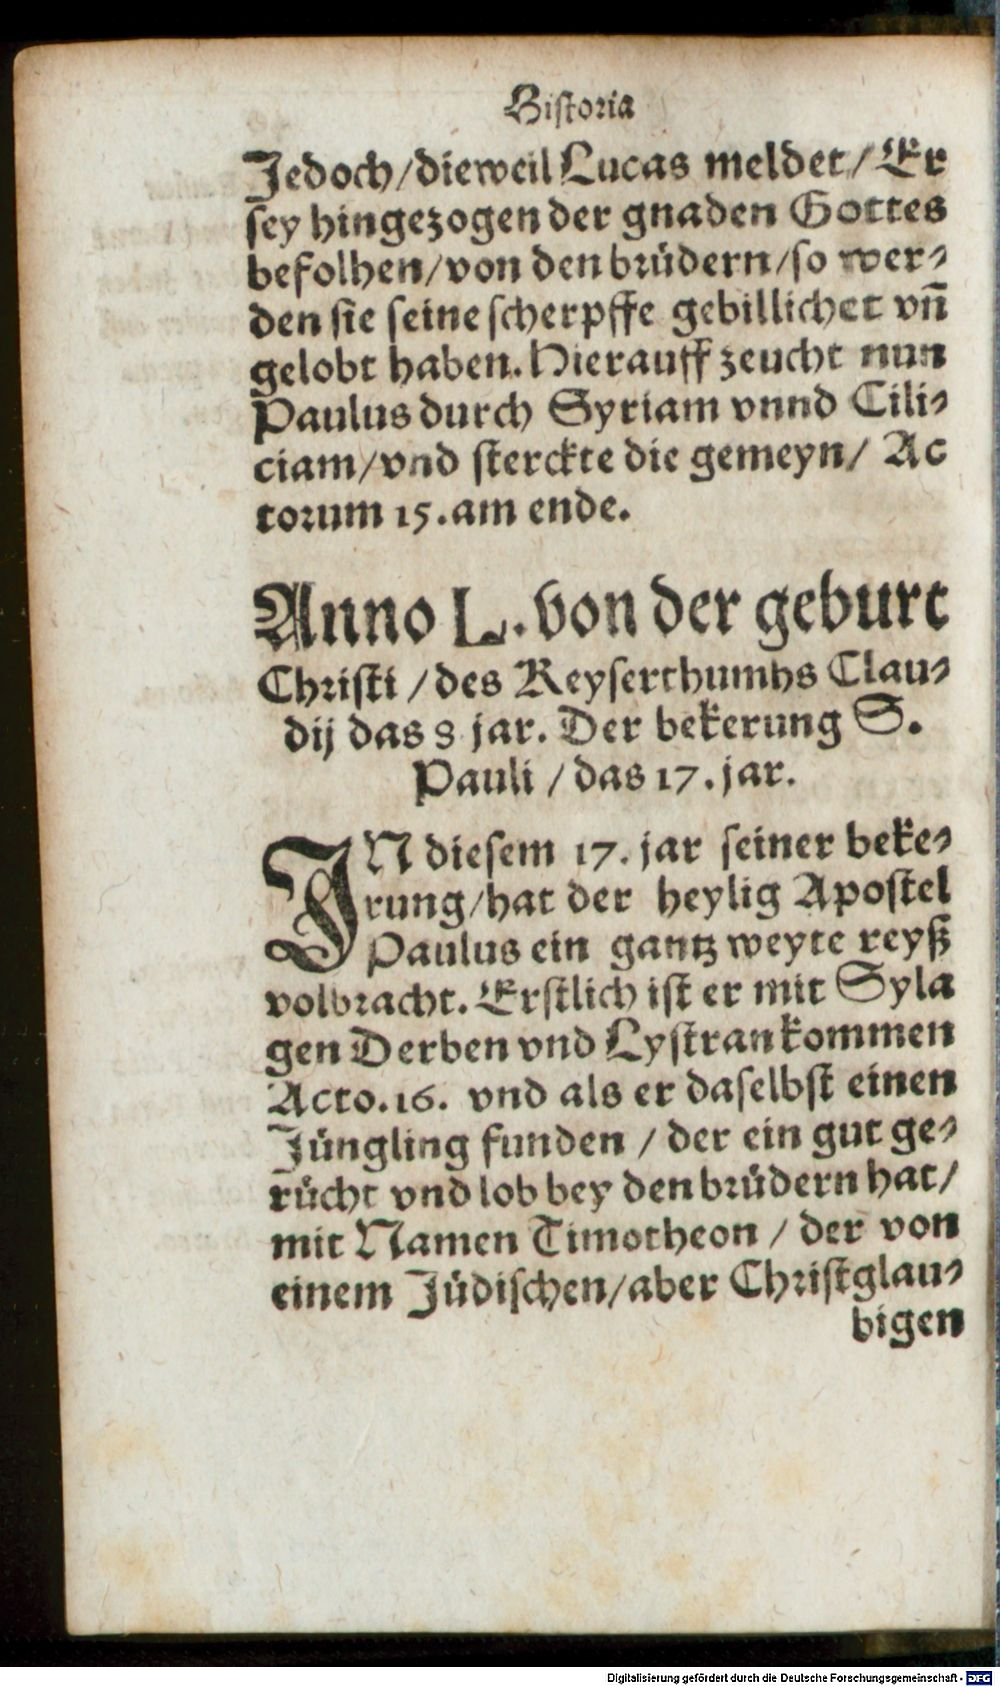 Historia
Jedoch/dieweil Lucas meldet/ Er
sey hingezogen der gnaden Gottes
befolhen/von den brüdern/so wer⸗
den sie seine scherpffe gebillichet vn̄
gelobt haben. Hierauff zeucht nun
Paulus durch Syriam vnnd Cili⸗
ciam/vnd sterckte die gemeyn/ Ac
torum 15. am ende.
Anno L. von der geburt
Christi /des Keyserthumbs Clau⸗
dij das 8 jar. Der bekerung S.
Pauli /das 17. jar.
IN diesem 17. jar seiner beke⸗
rung/hat der heylig Apostel
Paulus ein gantz weyte reyß
volbracht. Erstlich ist er mit Syla
gen Derben vnd Lystran kommen
Acto. 16. vnd als er daselbst einen
Jüngling funden / der ein gut ge⸗
rücht vnd lob bey den brüdern hat/
mit Namen Timotheon / der von
einem Jüdischen/aber Christglau⸗
bigen
Digitalisierung gefördert durch die Deutsche Forschungsgemeinschaft - DFG